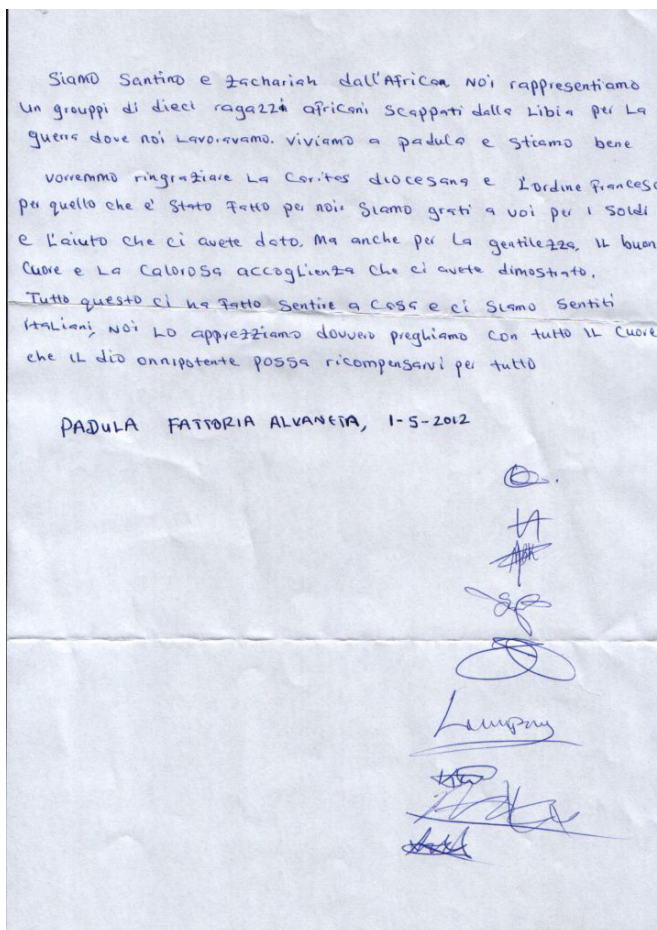 Siamo Santino e Zachariah dall'African Noi rappresentiamo
Un grouppi di dieci ragazzi africani scappati dalla Libia per La
guerra dove noi Lavoravamo. viviamo a padula e stiamo bene
vorremmo ringraziare La Caritas diocesana e L'ordine Francesc
per quello che e' Stato Fatto per noi. Siamo grati a voi per i Soldi
e L'aiuto che ci avete dato. Ma anche per La gentilezza, IL buon
Cuore e La Calorosa accoglienza che ci avete dimostrato.
Tutto questo ci ha Fatto Sentire a Casa e ci Siamo Sentiti
italiani, Noi Lo apprezziamo dovvero preghiamo Con tutto IL Cuore
che IL dio onnipotente possa ricompensarvi per tutto
PADULA FATTORIA ALVANETA, 1-5-2012